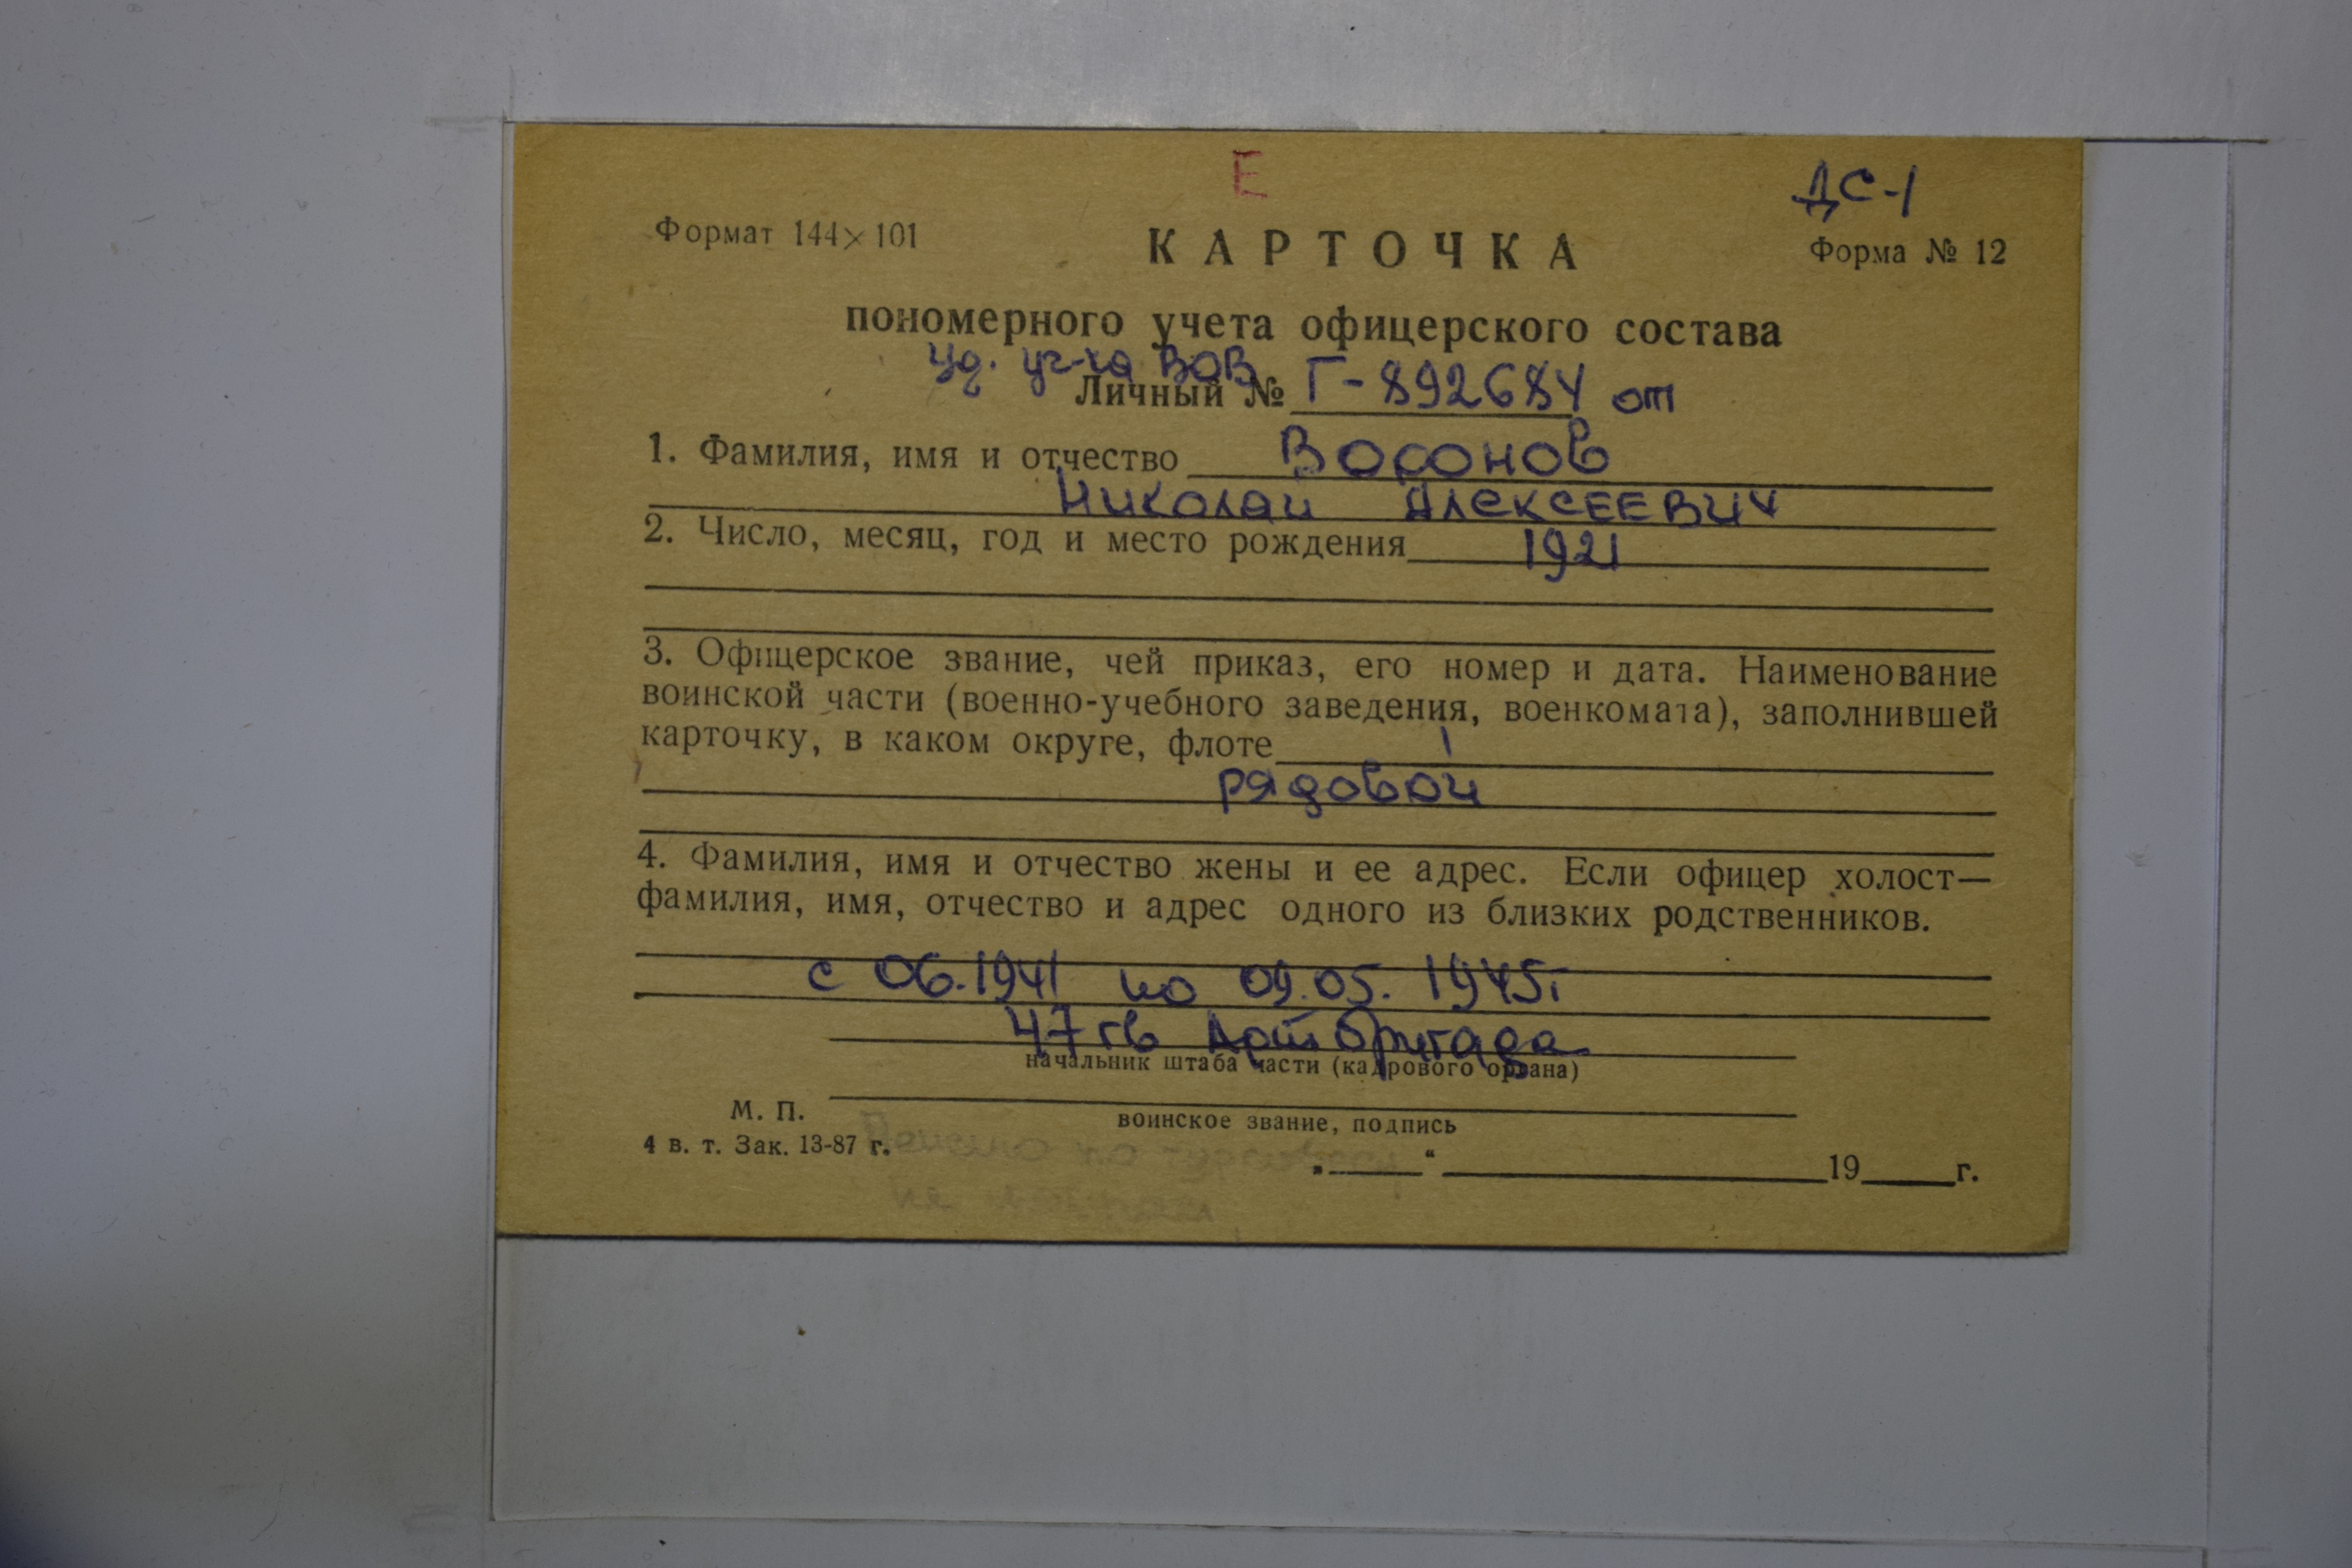 Е
ДС-1
Формат 144×101
КАРТОЧКА
Форма № 12
пономерного учета офицерского состава
Уд. уч-ка ВОВ
Личный № Г-892684 от
1. Фамилия, имя и отчество Воронов
Николай Алексеевич
2. Число, месяц, год и место рождения 1921
3. Офицерское звание, чей приказ, его номер и дата. Наименование
воинской части (военно-учебного заведения, военкомата), заполнившей
карточку, в каком округе, флоте
рядовой
4. Фамилия, имя и отчество жены и ее адрес. Если офицер холост—
фамилия, имя, отчество и адрес одного из близких родственников.
с 06.1941 по 09.05.1945г
47 гв Арт бригада
начальник штаба части (кадрового органа)
М. П.
воинское звание, подпись
4 в. т. Зак. 13-87 г.
„ “ 19 г.